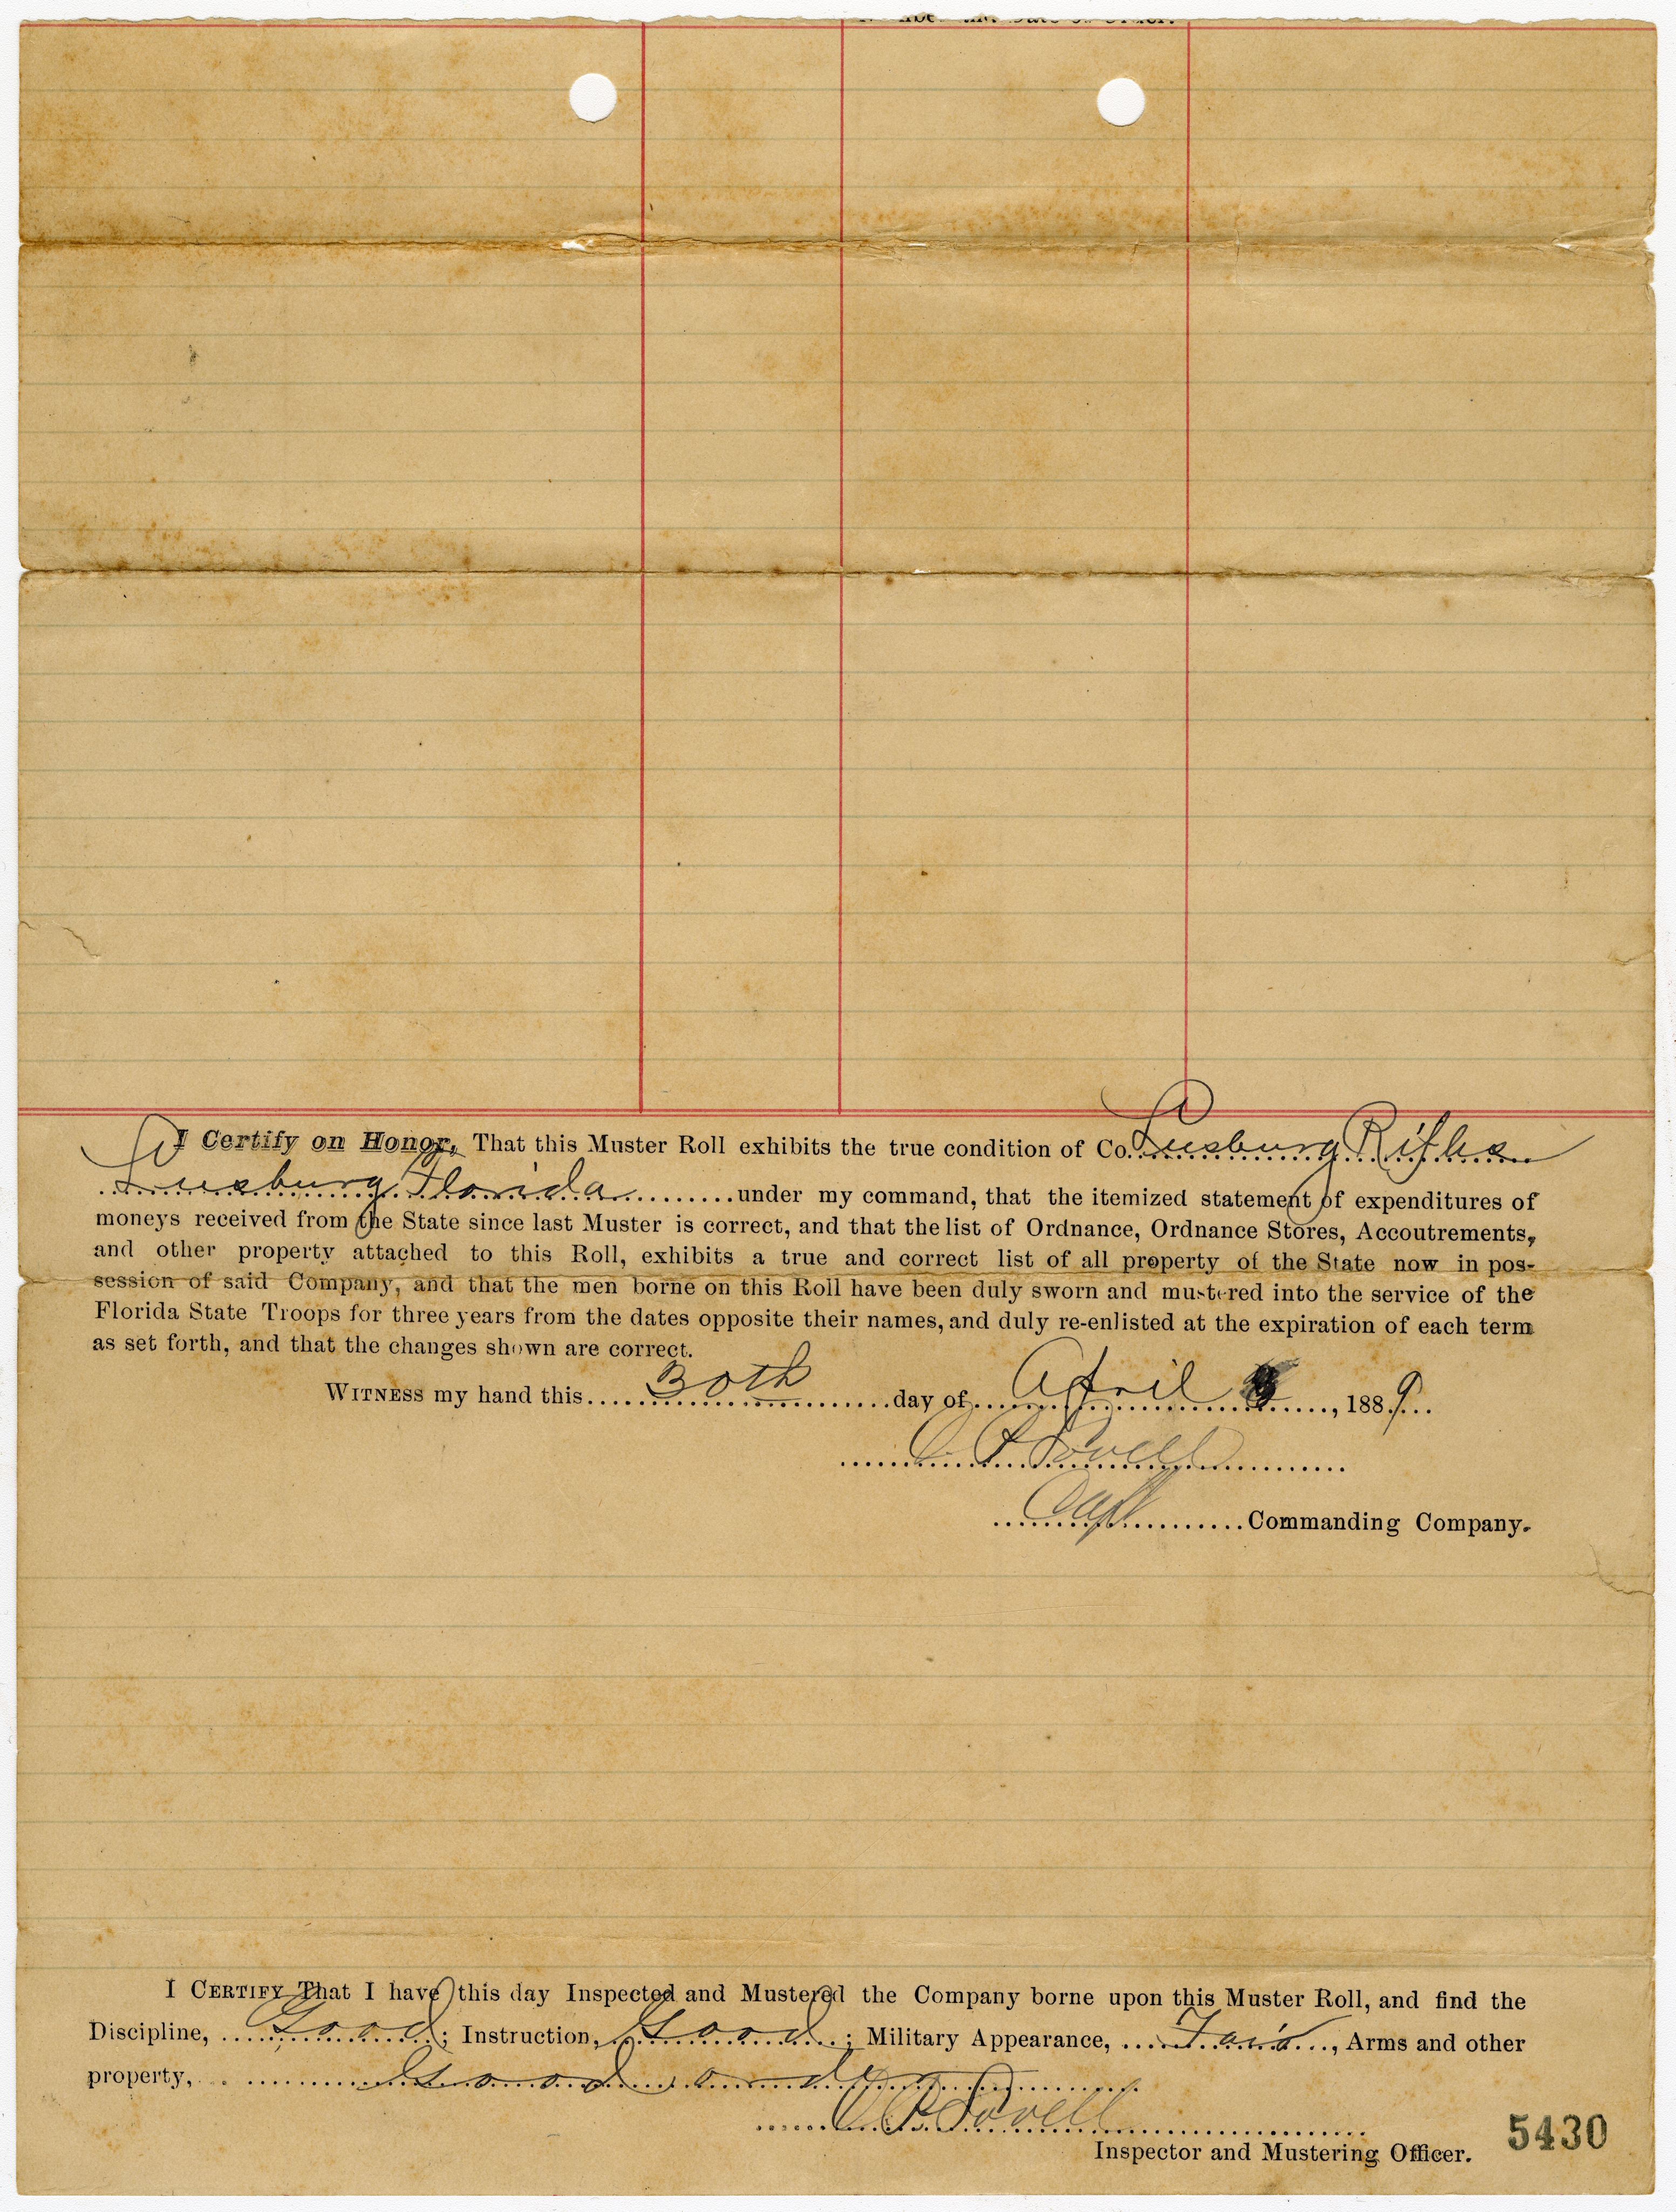 I Certify on Honor, That this Muster Roll exhibits the true condition of Co. Leesburg Rifles
Leesburg Florida under my command, that the itemized statement of expenditures of
moneys received from the State since last Muster is correct, and that the list of Ordnance, Ordnance Stores, Accoutrements,
and other property attached to this Roll, exhibits a true and correct list of all property of the State now in pos-
session of said Company, and that the men borne on this Roll have been duly sworn and mustered into the service of the
Florida State Troops for three years from the dates opposite their names, and duly re-enlisted at the expiration of each term
as set forth, and that the changes shown are correct.
WITNESS my hand this 30th day of April, 1889
Lovell
Capt Commanding Company.
I CERTIFY That I have this day Inspected and Mustered the Company borne upon this Muster Roll, and find the
Discipline, Good; Instruction, Good; Military Appearance, Fair, Arms and other
property, Good order
Lovell
Inspector and Mustering Officer.
5430